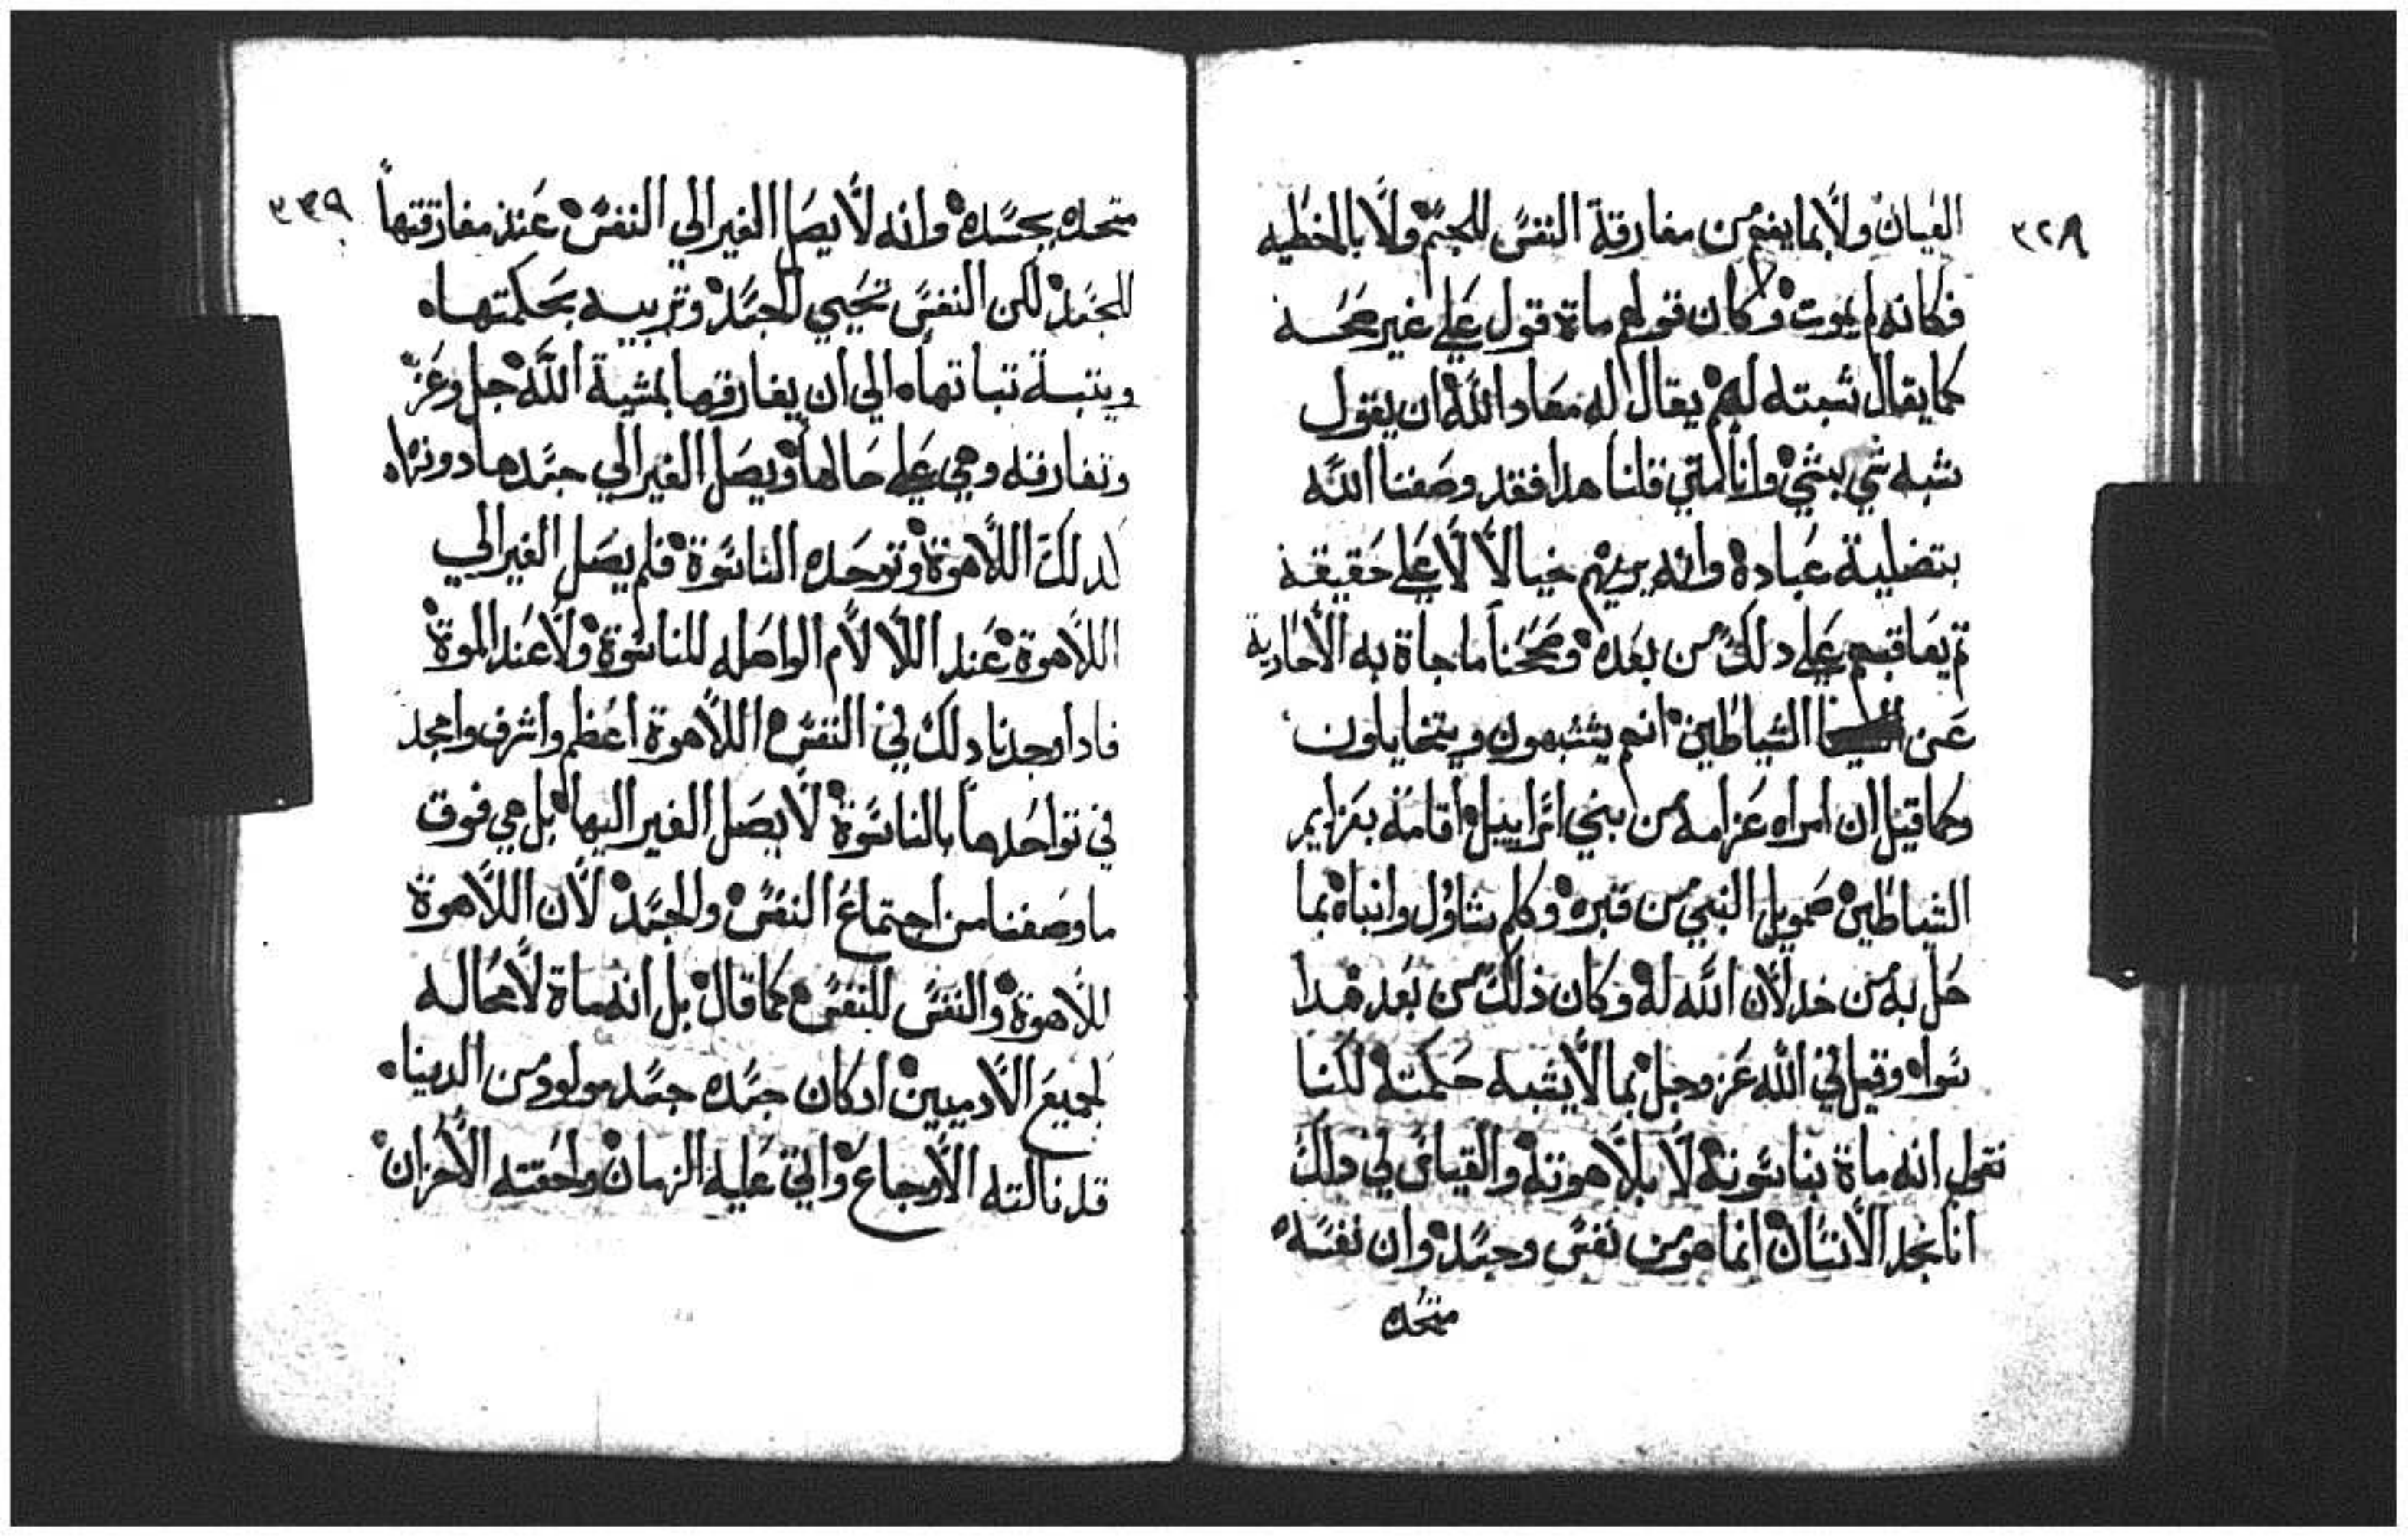 ٣٢٨
العيان ولا بما يفهم من مفارقة النفس للجسم ولا بالخطيه
فكانه لم يموت وكان قولهم ماة قول على غير صحه
كما يقال شبته لهم يقال له معاد الله ان يقول
شبه شي بشي وانا متي قلنا هدا فقد وصفنا الله
بتضلية عباده وانه يريهم خيالا لا على حقيقة
تم يعاقبهم على دلك من بعده وصححنا ما جاة به الاحادية
عن الشياطين انهم يتشبهون ويتخايلون
وكما قيل ان امراه عزامه من بني اسراييل اقامة بعزايم
الشياطين صمويل النبي من قبره وكلم شاول وانباه بما
حل به من خدلان الله له وكان ذلك من بعد هدا
سواه وقيل في الله عز وجل بما لا يشبه حكمته لكننا
نقول انه ماة بناسوته لا بلاهوته والقياس في دلك
انا نجد الانسان انما هو من نفس وجسد وان نفسه
متحده
٣٣٩
متحده بجسده وانه لا يصل الغير الي النفس عند مفارقتها
للجسد لكن النفس تحيي الجسد وتربيه بحكمتها
وبتبة تباتها الي ان يفارقها بمشية الله جل وعز
وتفارقه وهي على حالها ويصل الغير الي جسدها دونها
لدلك اللاهوة وتوحده الناسوة فلم يصل الغير الي
اللاهوة عند اللالام الواصله للناسوة ولا عند الموة
فادا وجدنا دلك في النفس اللاهوة اعظم واشرف وامجد
في تواحدها بالناسوة لا يصل الغير اليها بل هي فوق
ما وصفنا من اجتماع النفس والجسد لان اللاهوة
للاهوة والنفس للنفس كما قال بل انه ماة لا محاله
لجميع الادميين ادكان جسده جسد مولود من الدينا
قد نالته الاوجاع واتي عليه الزمان ولحقته الاحزان